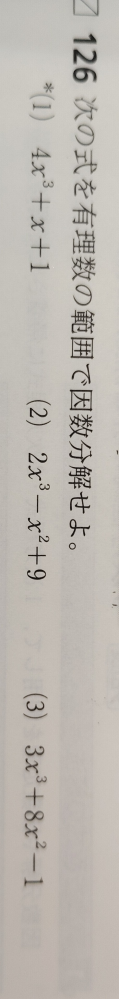 126 次の式を有理数の範囲で因数分解せよ。
*(1) 4x³+x+1 (2) 2x³−x²+9 (3) 3x³+8x²−1